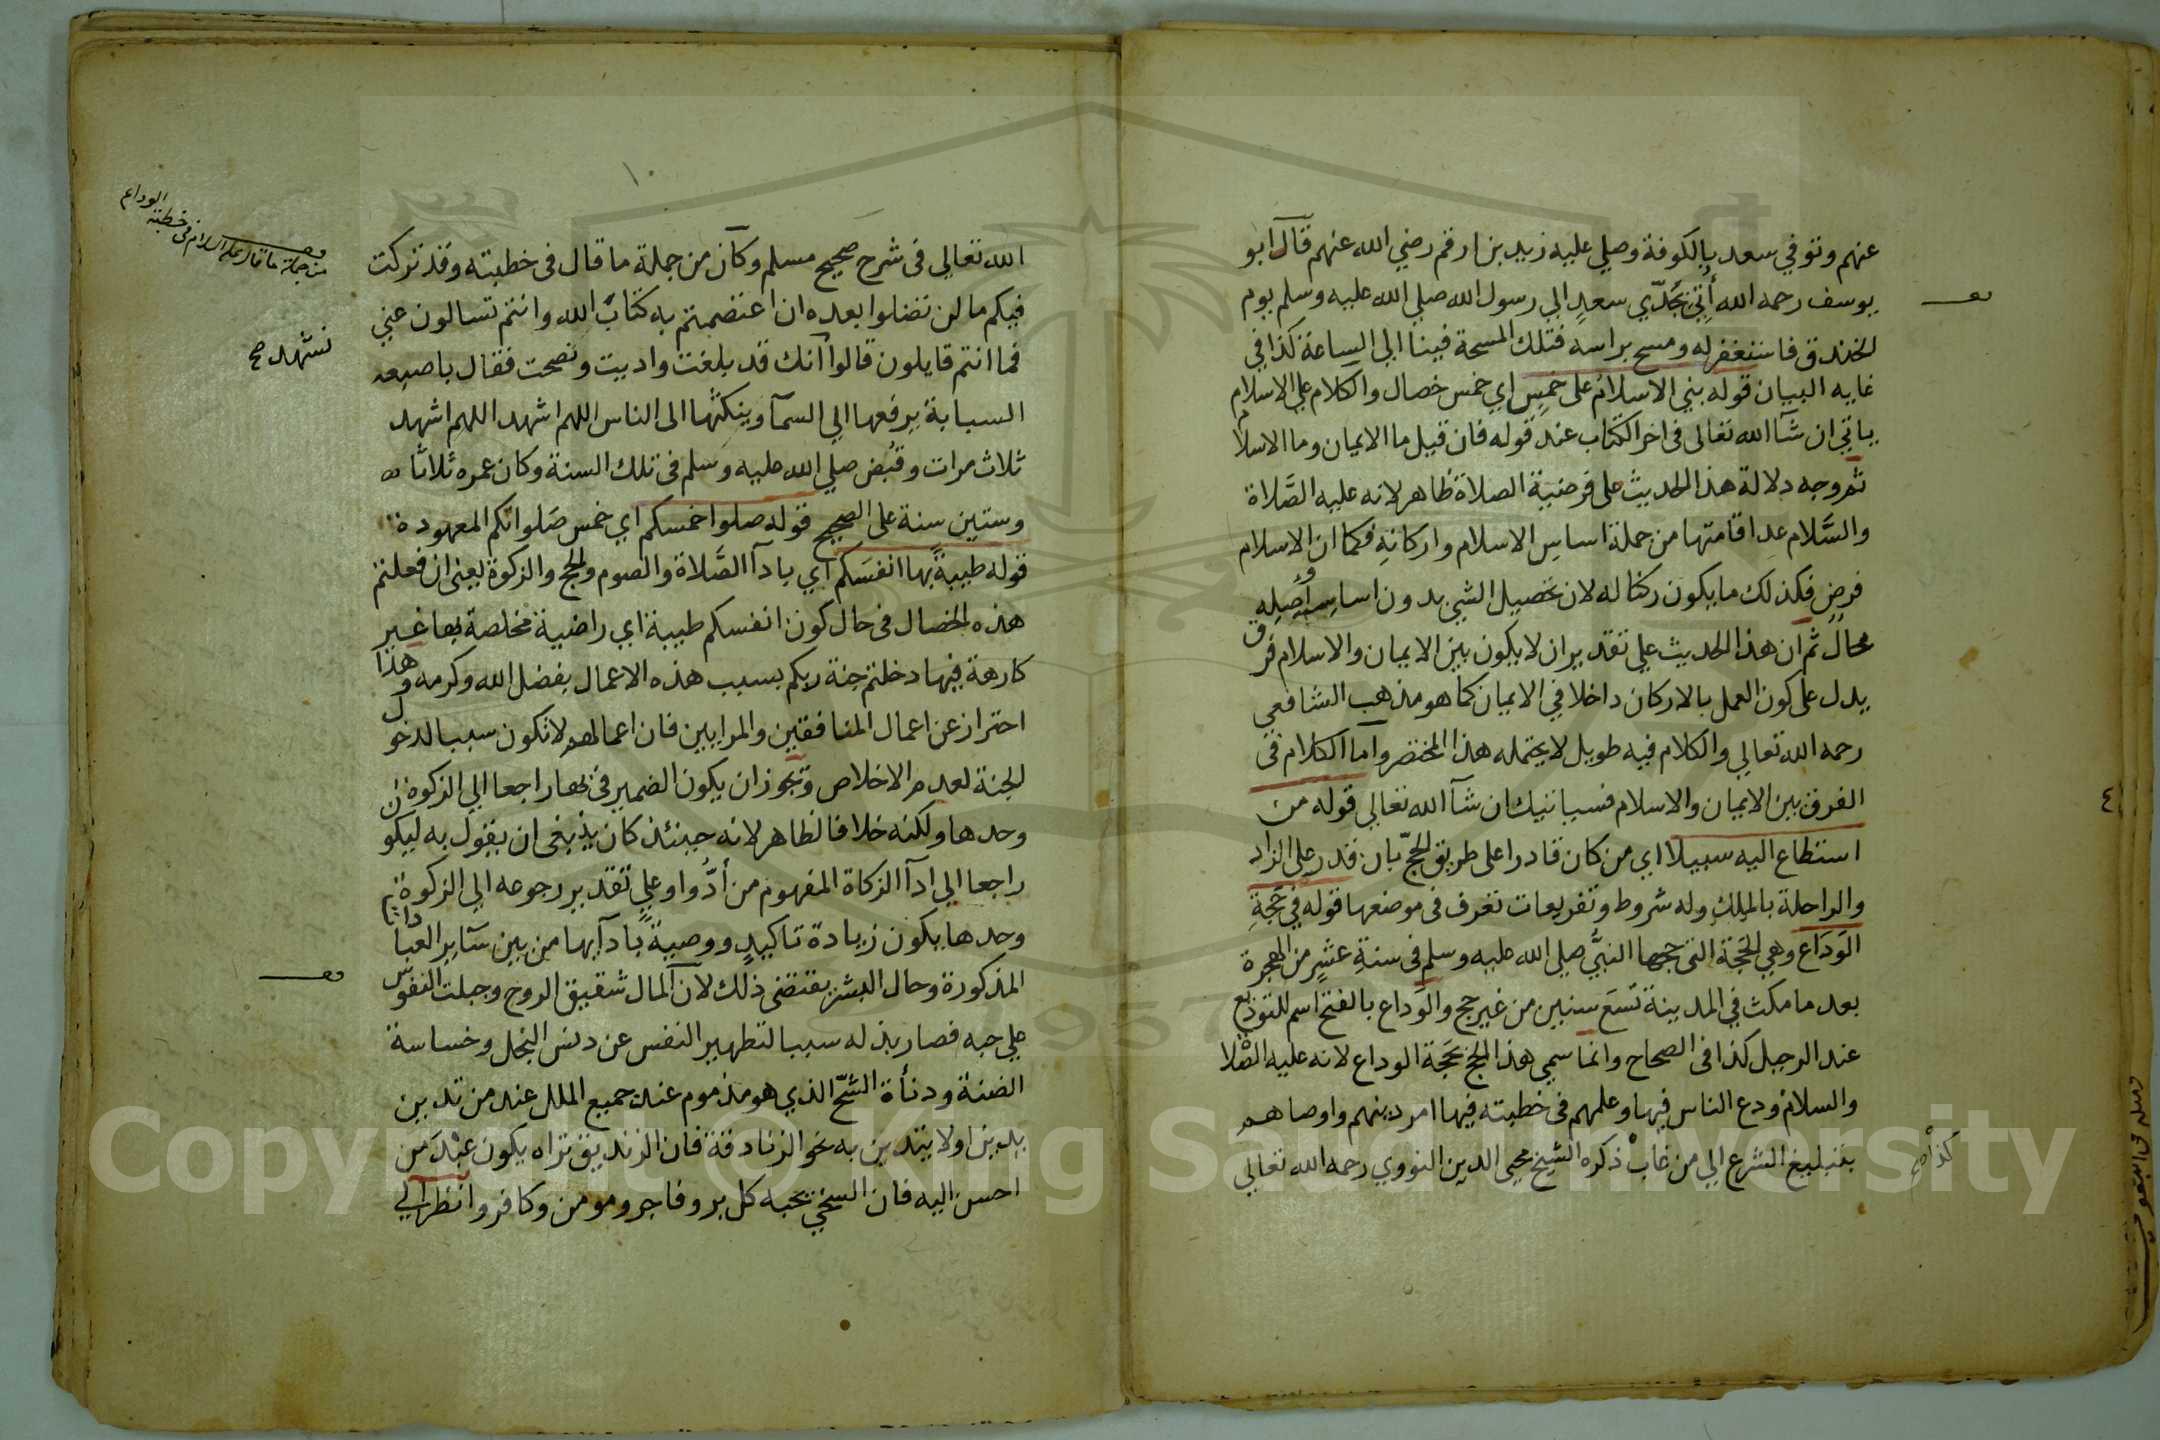 عنهم وتوفي سعد بالكوفة وصلي عليه زيد بن ارقم رضي الله عنهم قال ابو
يوسف رحمه الله أُتِيَ بجَدّي سعدٍ الي رسول الله صلي الله عليه وسلم يوم
الخندق فاستغفر له ومسح براسه فتلك المسحة فينا الي الساعة كذا في
غايه البيان قوله بني الاسلام على خمسٍ اي خمس خصال والكلام علي الاسلام
ياتي ان شآ الله تعالى في اخر الكتاب عند قوله فان قيل ما الايمان وما الاسلام
ثم وجه دلالة هذا الحديث على فرضية الصلاة ظاهر لانه عليه الصَّلاة
والسَّلام عد اقامتها من جملة اساس الاسلام واركانه فكما ان الاسلام
فرض فكذلك ما يكون ركنا له لان تحصيل الشي بدون اساسه وأصله
محال ثم ان هذا الحديث علي تقدير ان لا يكون بين الايمان والاسلام فرق
يدل على كون العمل بالاركان داخلا في الايمان كما هو مذهب الشافعي
رحمه الله تعالي والكلام فيه طويل لا يحتمله هذا المختصر واما الكلام في
الفرق بين الايمان والاسلام فسياتيك ان شآ الله تعالي قوله من
استطاع اليه سبيلا اي من كان قادرا على طريق الحجّ بان قدر على الزاد
والراحلة بالمِلكِ وله شروط وتفريعات تعرف في موضعها قوله في حَجةِ
الوَدَاع وهي الحَجة التي حجها النبيُّ صلي الله عليه وسلم في سنةِ عشرٍ من الهجرة
بعد ما مكث في المدينة تسَعَ سنين من غير حج والوَداع بالفتح اسم للتوديع
عند الرحيل كذا في الصحاح وانما سمي هذا الحج بحَجة الوداع لانه عليه الصلاة
والسلام ودع الناس فيها وعلمهم في خطبته فيها امر دينهم واوصاهم
بتبليغ الشرع الي من غاب ذكره الشيخ محيي الدين النووي رحمه الله تعالي
كذا صح
٤
١٠
الله تعالي في شرح صحيح مسلم وكان من جملة ما قال في خطبته وقد تركت
فيكم ما لن تضلوا بعده ان اعتصمتم به كتابَ الله وانتم تسالون عني
فما انتم قايلون قالوا انك قد بلغت واديت ونصحت فقال باصبعه
السبابة يرفعها الي السمآ وينكتُها الى الناس اللهم اشهد اللهم اشهد
ثلاث مرات وقُبض صلي الله عليه وسلم في تلك السنة وكان عمره ثلاثًا
وستين سنة على الصحيح قوله صلوا خمسكم اي خمس صَلواتكم المعهودة
قوله طيبةً بها انفسَكم اي بادآ الصَّلاة والصوم والحج والزكوة يعني ان فعلتم
هذه الخصال في حال كون انفسكم طيبة اي راضية مخلصة بها غير
كارهة فيها دخلتم جنة ربكم بسبب هذه الاعمال بفضل الله وكرمه وهذا
احتراز عن اعمال المنافقين والمرايين فان اعمالهم لا تكون سببا لدخول
الجنة لعدم الاخلاص ويجوز ان يكون الضمير في بها راجعا الي الزكوة
وحدها ولكنه خلاف الظاهر لانه حينئذ كان ينبغي ان يقول به ليكون
راجعا الي ادآ الزكاة المفهوم من أدُّوا وعلي تقدير رجوعه الي الزكوة
وحدها يكون زيادة تاكيدٍ ووصيةً بادآيها من بين سآير العبادات
المذكورة وحال البشر يقتضي ذلك لان المال شقيق الروح وجبلت النفوس
علي حبه فصار بذله سببا لتطهير النفس عن دنس البخل وخساسة
الضنة ودنأة الشحّ الذي هو مذموم عند جميع الملل عند من تدين
بدين او لا يتدين به نحو الزنادقة فان الزنديق تراه يكون عبْدَ من
احسن اليه فان السخي يحبه كل بر وفاجر ومومن وكافر وانظر الي
من جملة ما قال عليه السلام في خطبته الوداع
نشهد صح
Copyright © King Saud University
1957